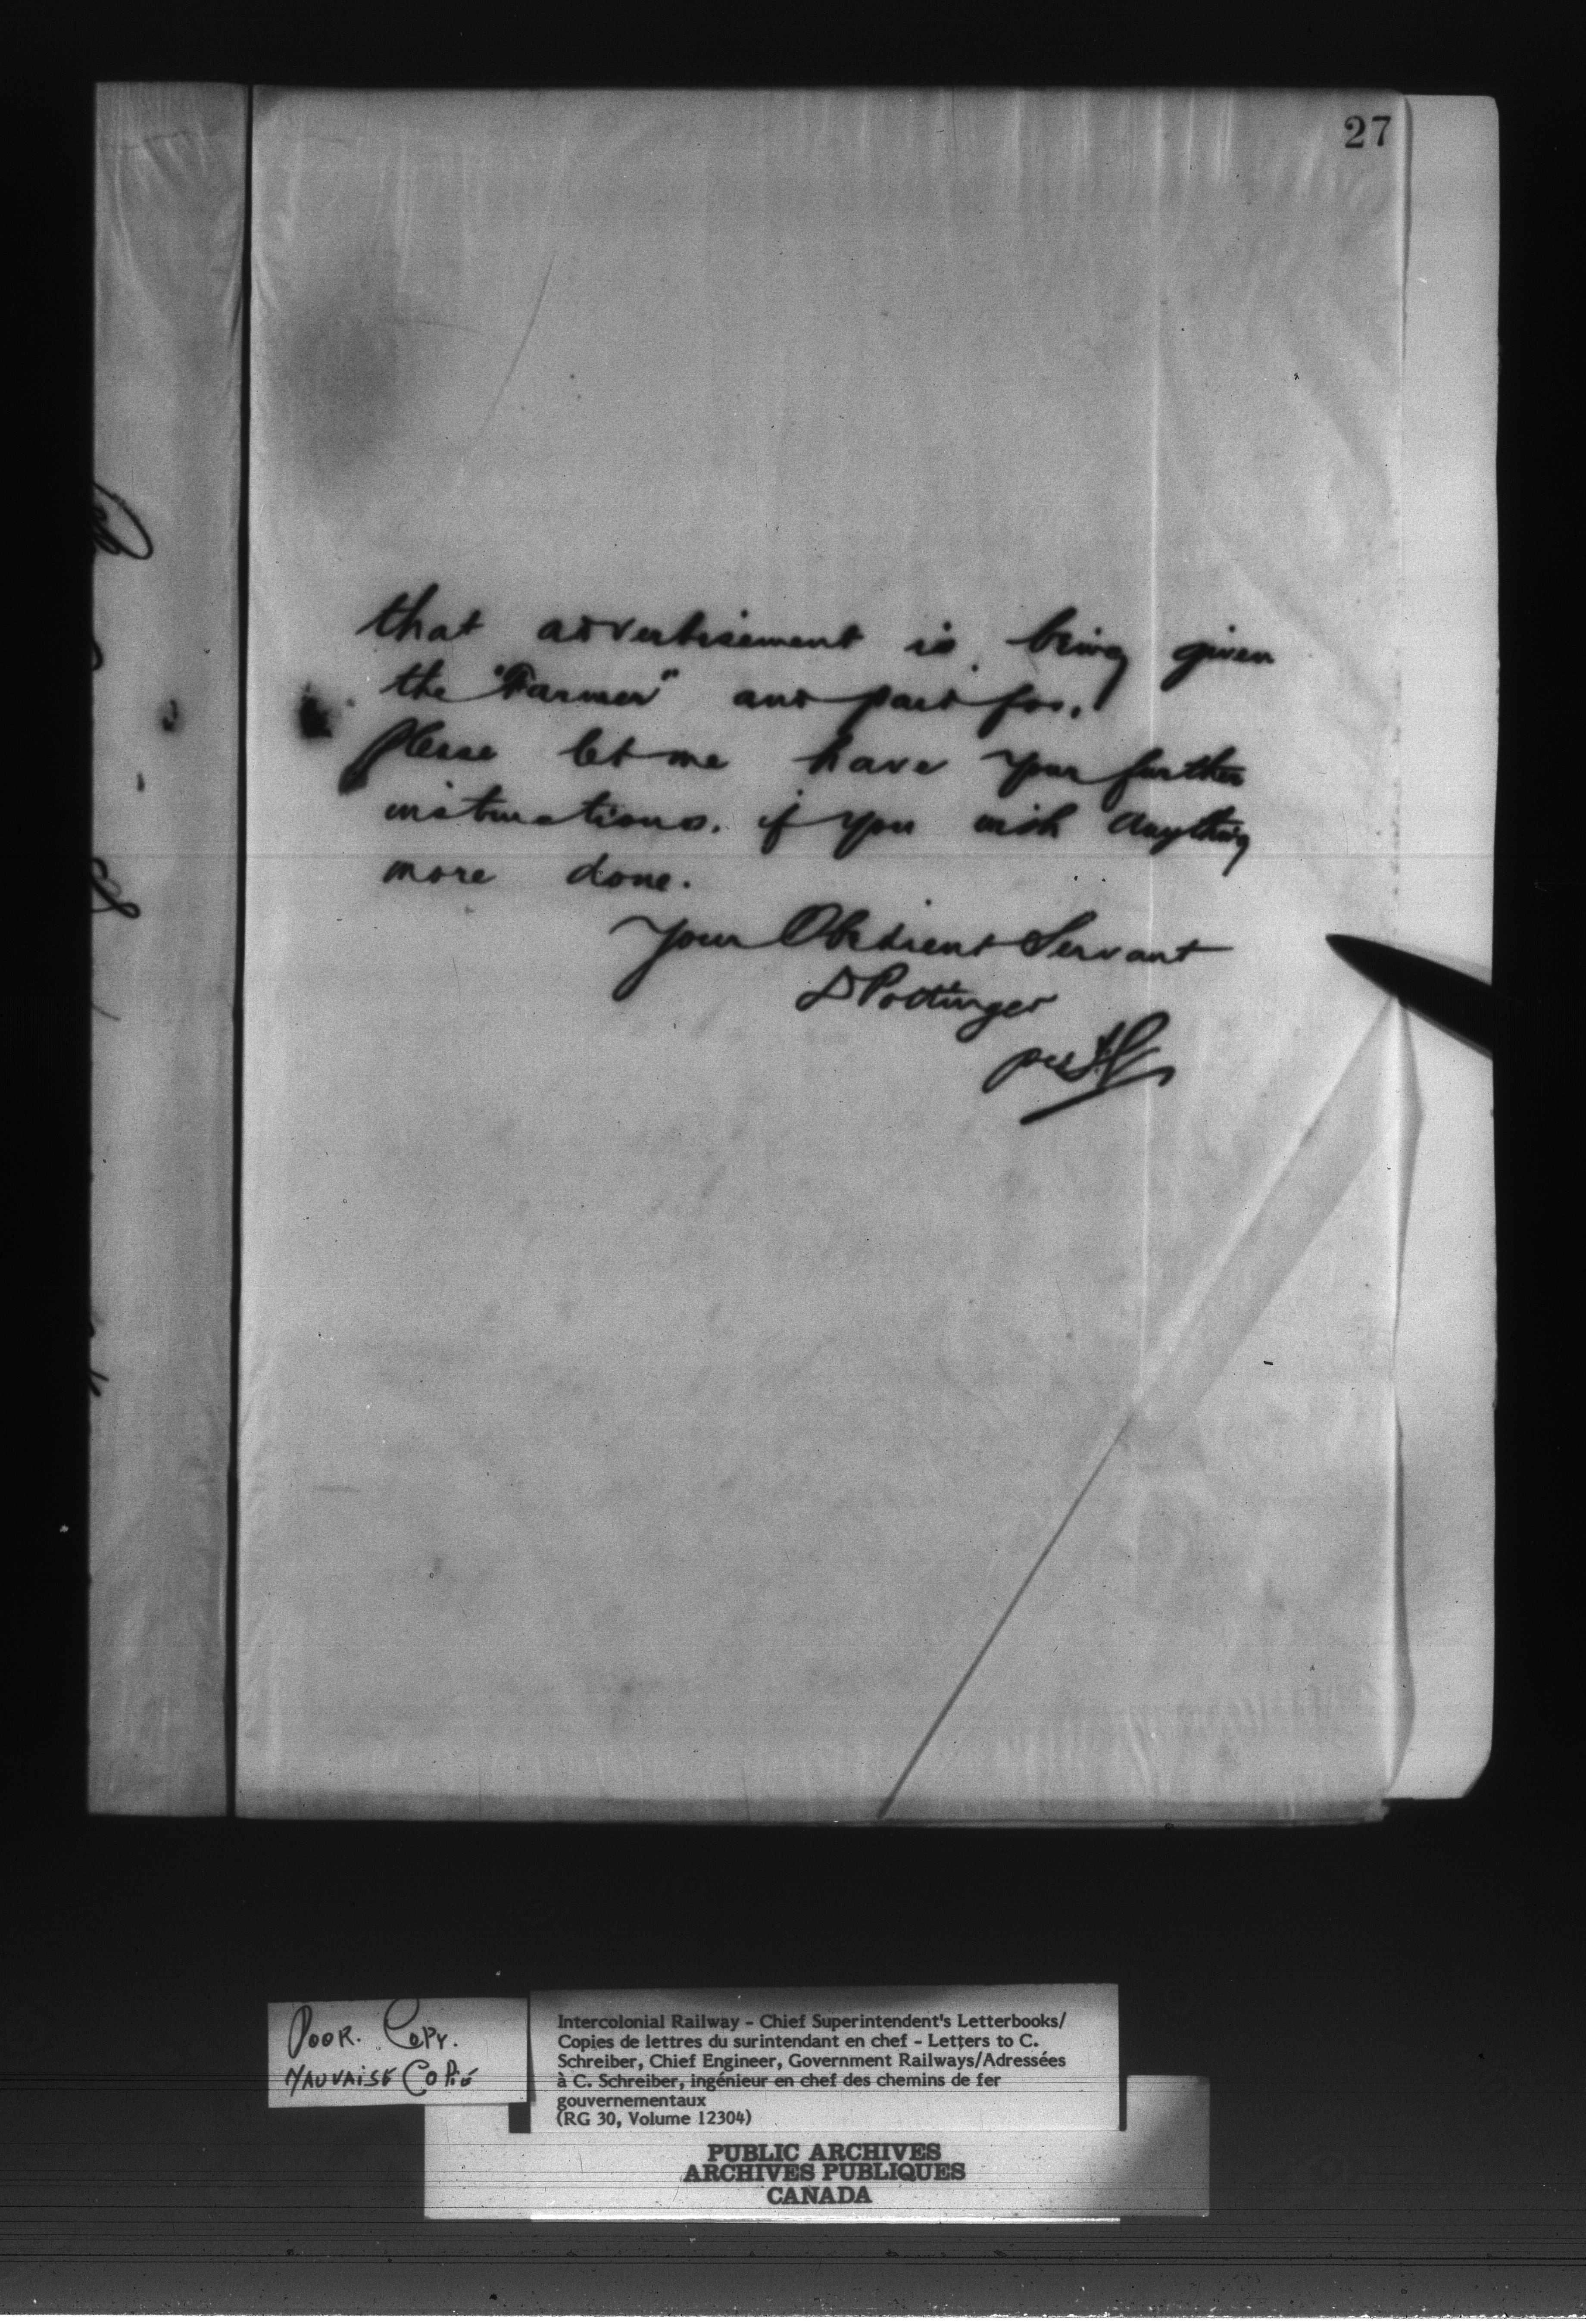 27
that advertisement is being given
the "Farmer" and paid for.
Please let me have your further
instructions. if you wish anything
more done.
Your Obedient Servant
D Pottinger
per
POOR. COPY.
MAUVAISE COPIE
Intercolonial Railway - Chief Superintendent's Letterbooks/
Copies de lettres du surintendant en chef - Letters to C.
Schreiber, Chief Engineer, Government Railways/Adressées
à C. Schreiber, ingénieur en chef des chemins de fer
gouvernementaux
(RG 30, Volume 12304)
PUBLIC ARCHIVES
ARCHIVES PUBLIQUES
CANADA